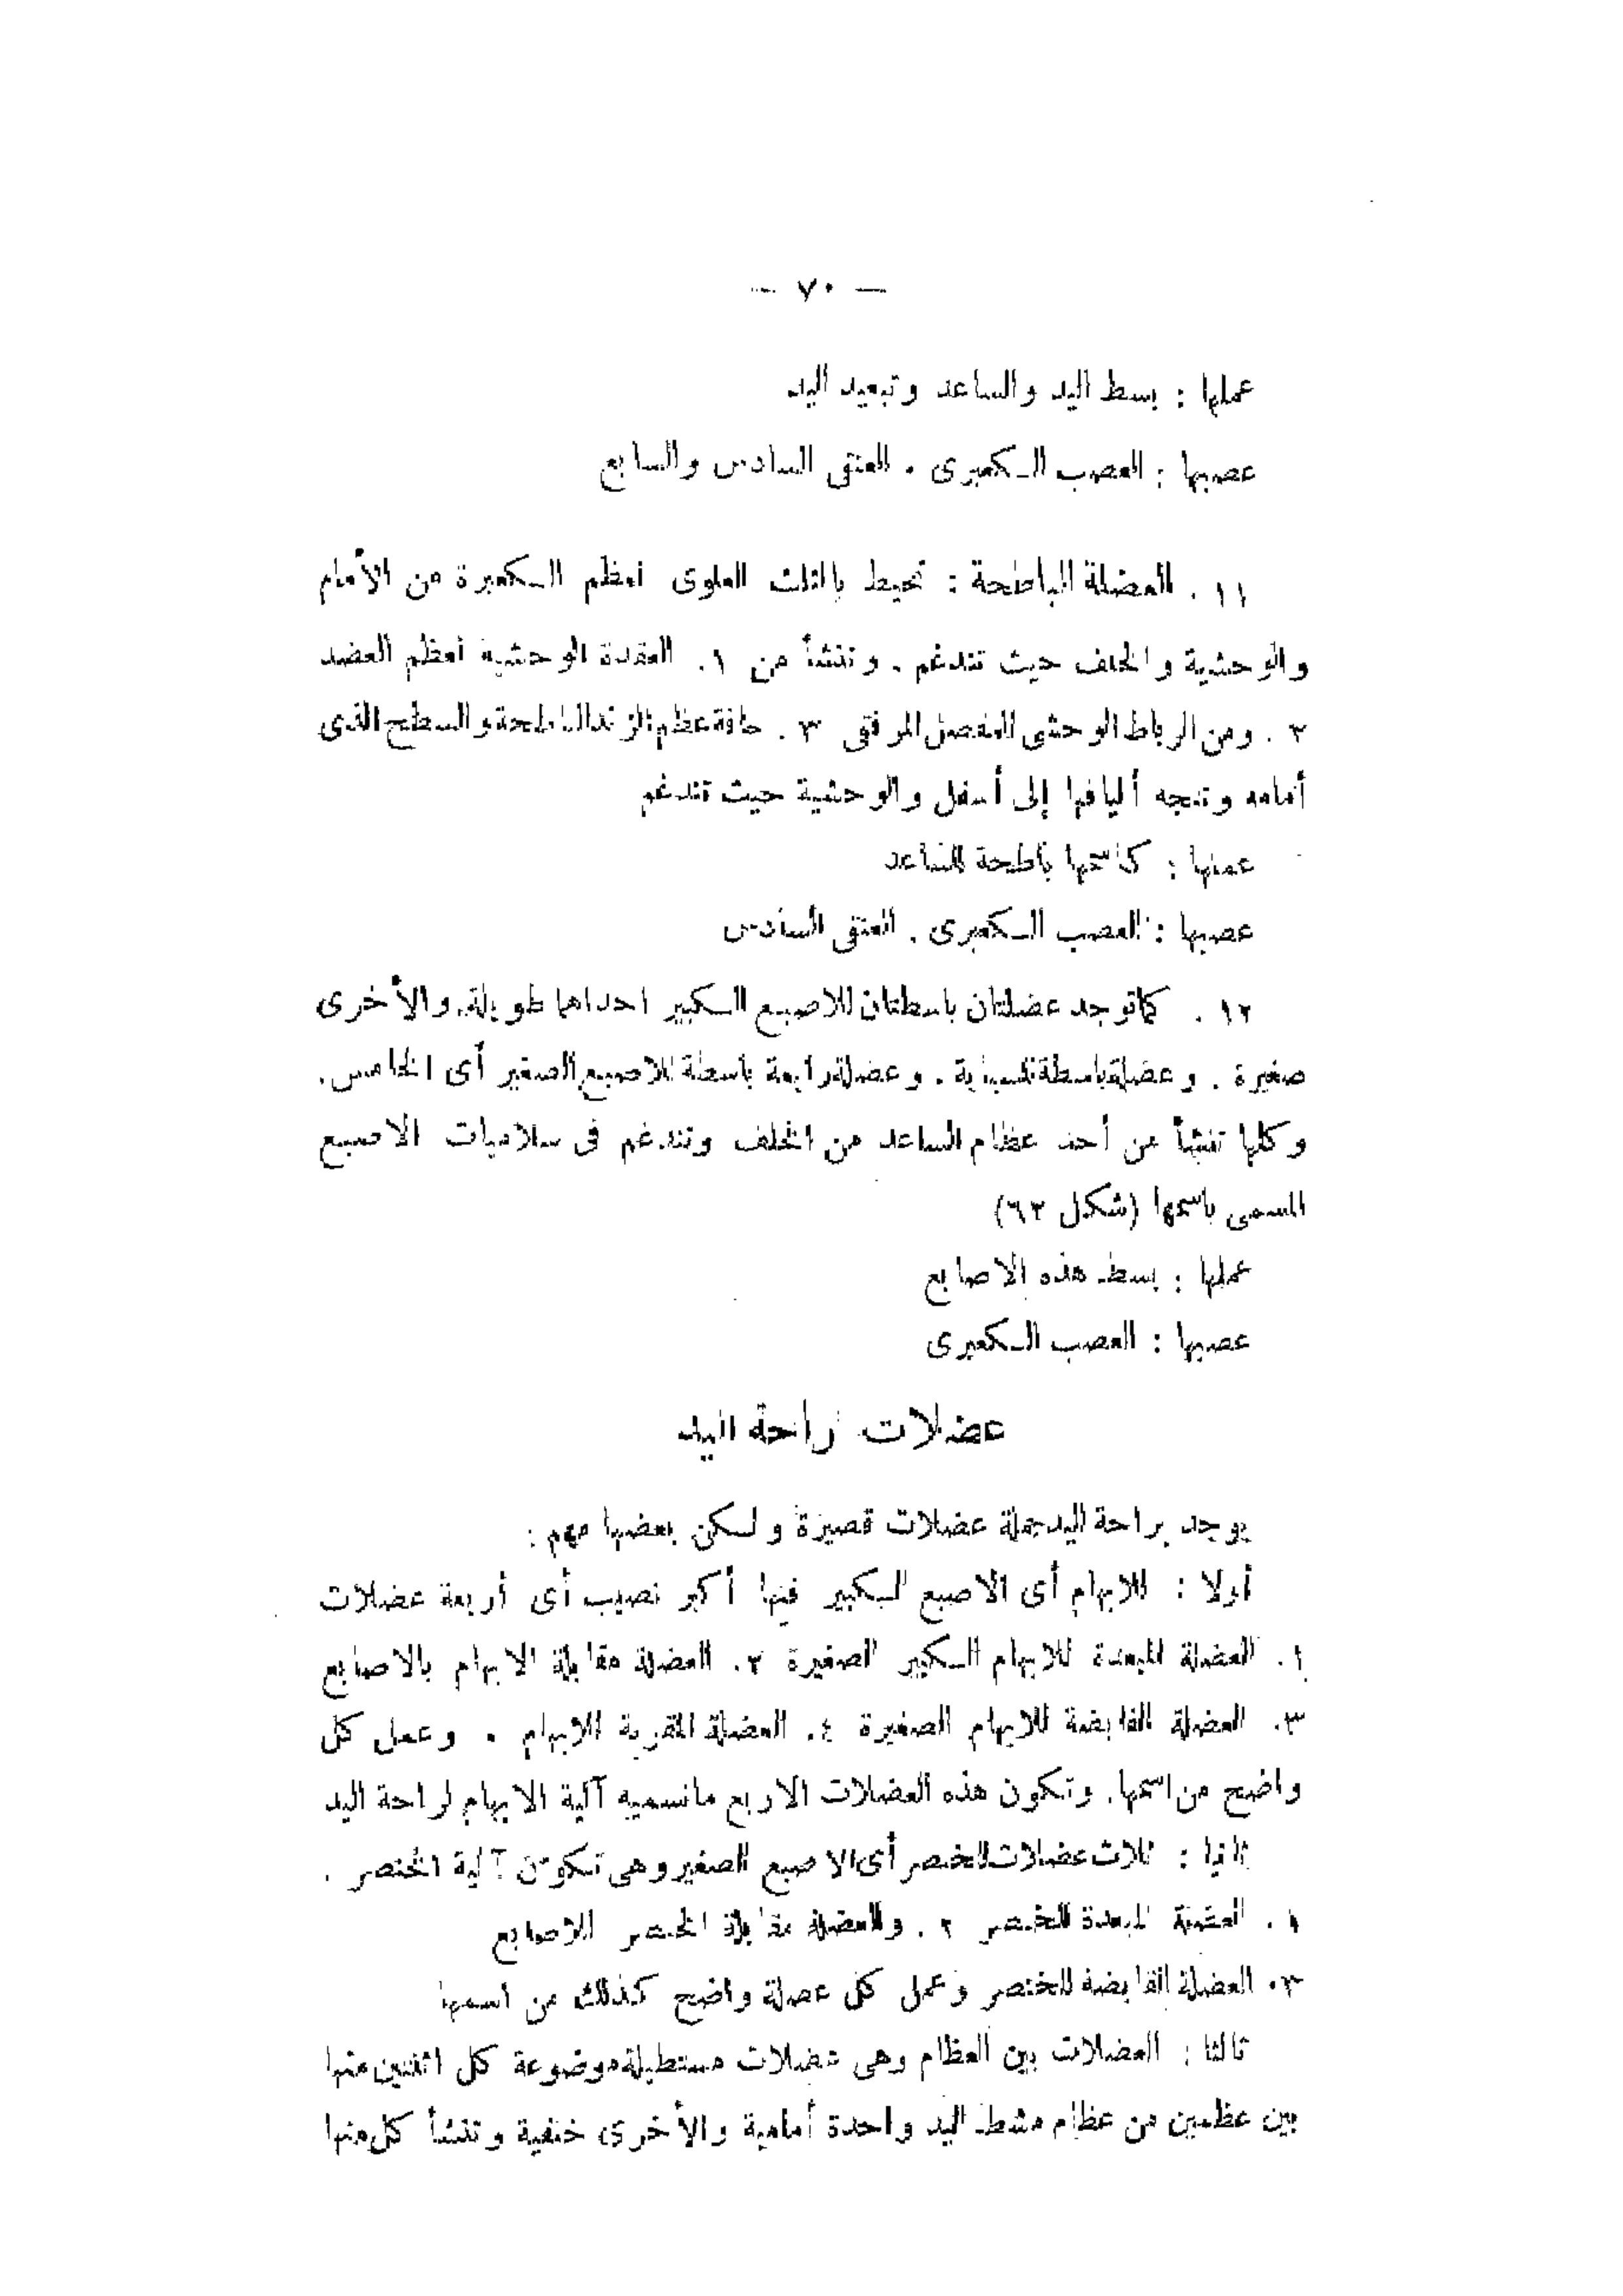 — ٧٠ —
عملها : بسط اليد والساعد وتبعيد اليد
عصبها : العصب الكعبرى . العنقى السادس والسابع
١١ . العضلة الباطحة : تحيط بالثلث العلوى لعظم الكعبرة من الأمام
والوحشية والخلف حيث تندغم . وتنشأ من ١. العقدة الوحشية لعظم العضد
٢ . ومن الرباط الوحشى للمفصل المرفقى ٣ . حافة عظم الزند الباطحة والسطح الذى
أمامه وتتجه أليافها إلى أسفل والوحشية حيث تندغم
عملها : كاسمها باطحة للساعد
عصبها : العصب الكعبرى . العنقى السادس
١٢ . كما توجد عضلتان باسطتان للاصبع الكبير احداهما طويلة والأخرى
صغيرة . وعضلة باسطة للسبابة . وعضلة رابعة باسطة للاصبع الصغير أى الخامس .
وكلها تنشأ من أحد عظام الساعد من الخلف وتندغم فى سلاميات الاصبع
المسمى باسمها (شكل ٦٢)
عملها : بسط هذه الاصابع
عصبها : العصب الكعبرى
عضلات راحة اليد
يوجد براحة اليد جملة عضلات قصيرة ولكن بعضها مهم :
أولا : للابهام أى الاصبع الكبير فيها أكبر نصيب أى أربعة عضلات
١. العضلة المبعدة للابهام الكبير الصغيرة ٢. العضلة مقابلة الابهام بالاصابع
٣. العضلة القابضة للابهام الصغيرة ٤. العضلة المقربة للابهام . وعمل كل
واضح من اسمها. وتكون هذه العضلات الاربع مانسميه آلية الابهام لراحة اليد
ثانيا : ثلاث عضلات للخنصر أى الاصبع الصغير وهى تكوّن آلية الخنصر .
١ . العضلة المبعدة للخنصر ٢ . والعضلة مقابلة الخنصر للاصابع
٣. العضلة القابضة للخنصر وعمل كل عضلة واضح كذلك من اسمها
ثالثا : العضلات بين العظام وهى عضلات مستطيلة موضوعة كل اثنتين منها
بين عظمين من عظام مشط اليد واحدة أمامية والأخرى خلفية وتنشأ كل منها